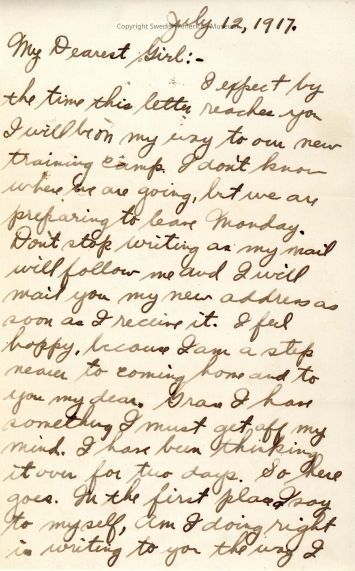 Copyright Swedish American Museum
July 12, 1917.
My Dearest Girl:-
I expect by
the time this letter reaches you
I will be on my way to our new
training camp. I don't know
where we are going, but we are
preparing to leave Monday.
Don't stop writing as my mail
will follow me and I will
mail you my new address as
soon as I receive it. I feel
happy, because I am a step
nearer to coming home and to
you my dear. Grace I have
something I must get off my
mind. I have been thinking
it over for two days. So here
goes. In the first place I say
to myself, am I doing right
in writing to you the way I